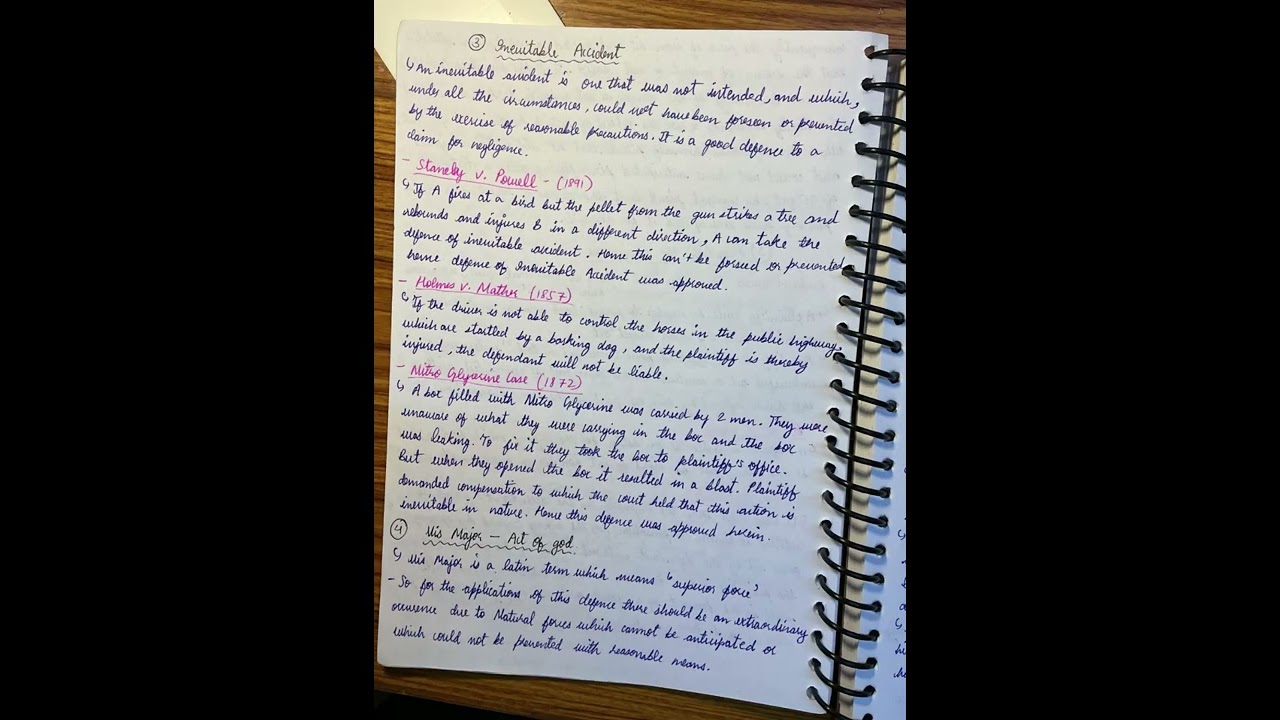 ③ Inevitable Accident
↳ An inevitable accident is one that was not intended, and which,
under all the circumstances, could not have been foreseen or prevented
by the exercise of reasonable precautions. It is a good defence to a
claim for negligence.
- Stanely v. Powell - (1891)
↳ If A fires at a bird but the pellet from the gun strikes a tree and
rebounds and injures B in a different direction, A can take the
defence of inevitable accident. Hence this can't be forseed or prevented
hence defence of Inevitable Accident was approved.
- Holmes v. Mather (1857)
↳ If the driver is not able to control the horses in the public highway,
which are startled by a barking dog, and the plaintiff is thereby
injured, the defendant will not be liable.
- Nitro Glycerine Case (1872)
↳ A box filled with Nitro Glycerine was carried by 2 men. They were
unaware of what they were carrying in the box and the box
was leaking. To fix it they took the box to plaintiff's office.
But when they opened the box it resulted in a blast. Plaintiff
demanded compensation to which the court held that this action is
inevitable in nature. Hence this defence was approved herein.
④ Vis Major - Act of god.
↳ Vis Major is a latin term which means "superior force"
- So for the applications of this defence there should be an extraordinary
occurence due to Natural forces which cannot be anticipated or
which could not be prevented with reasonable means.